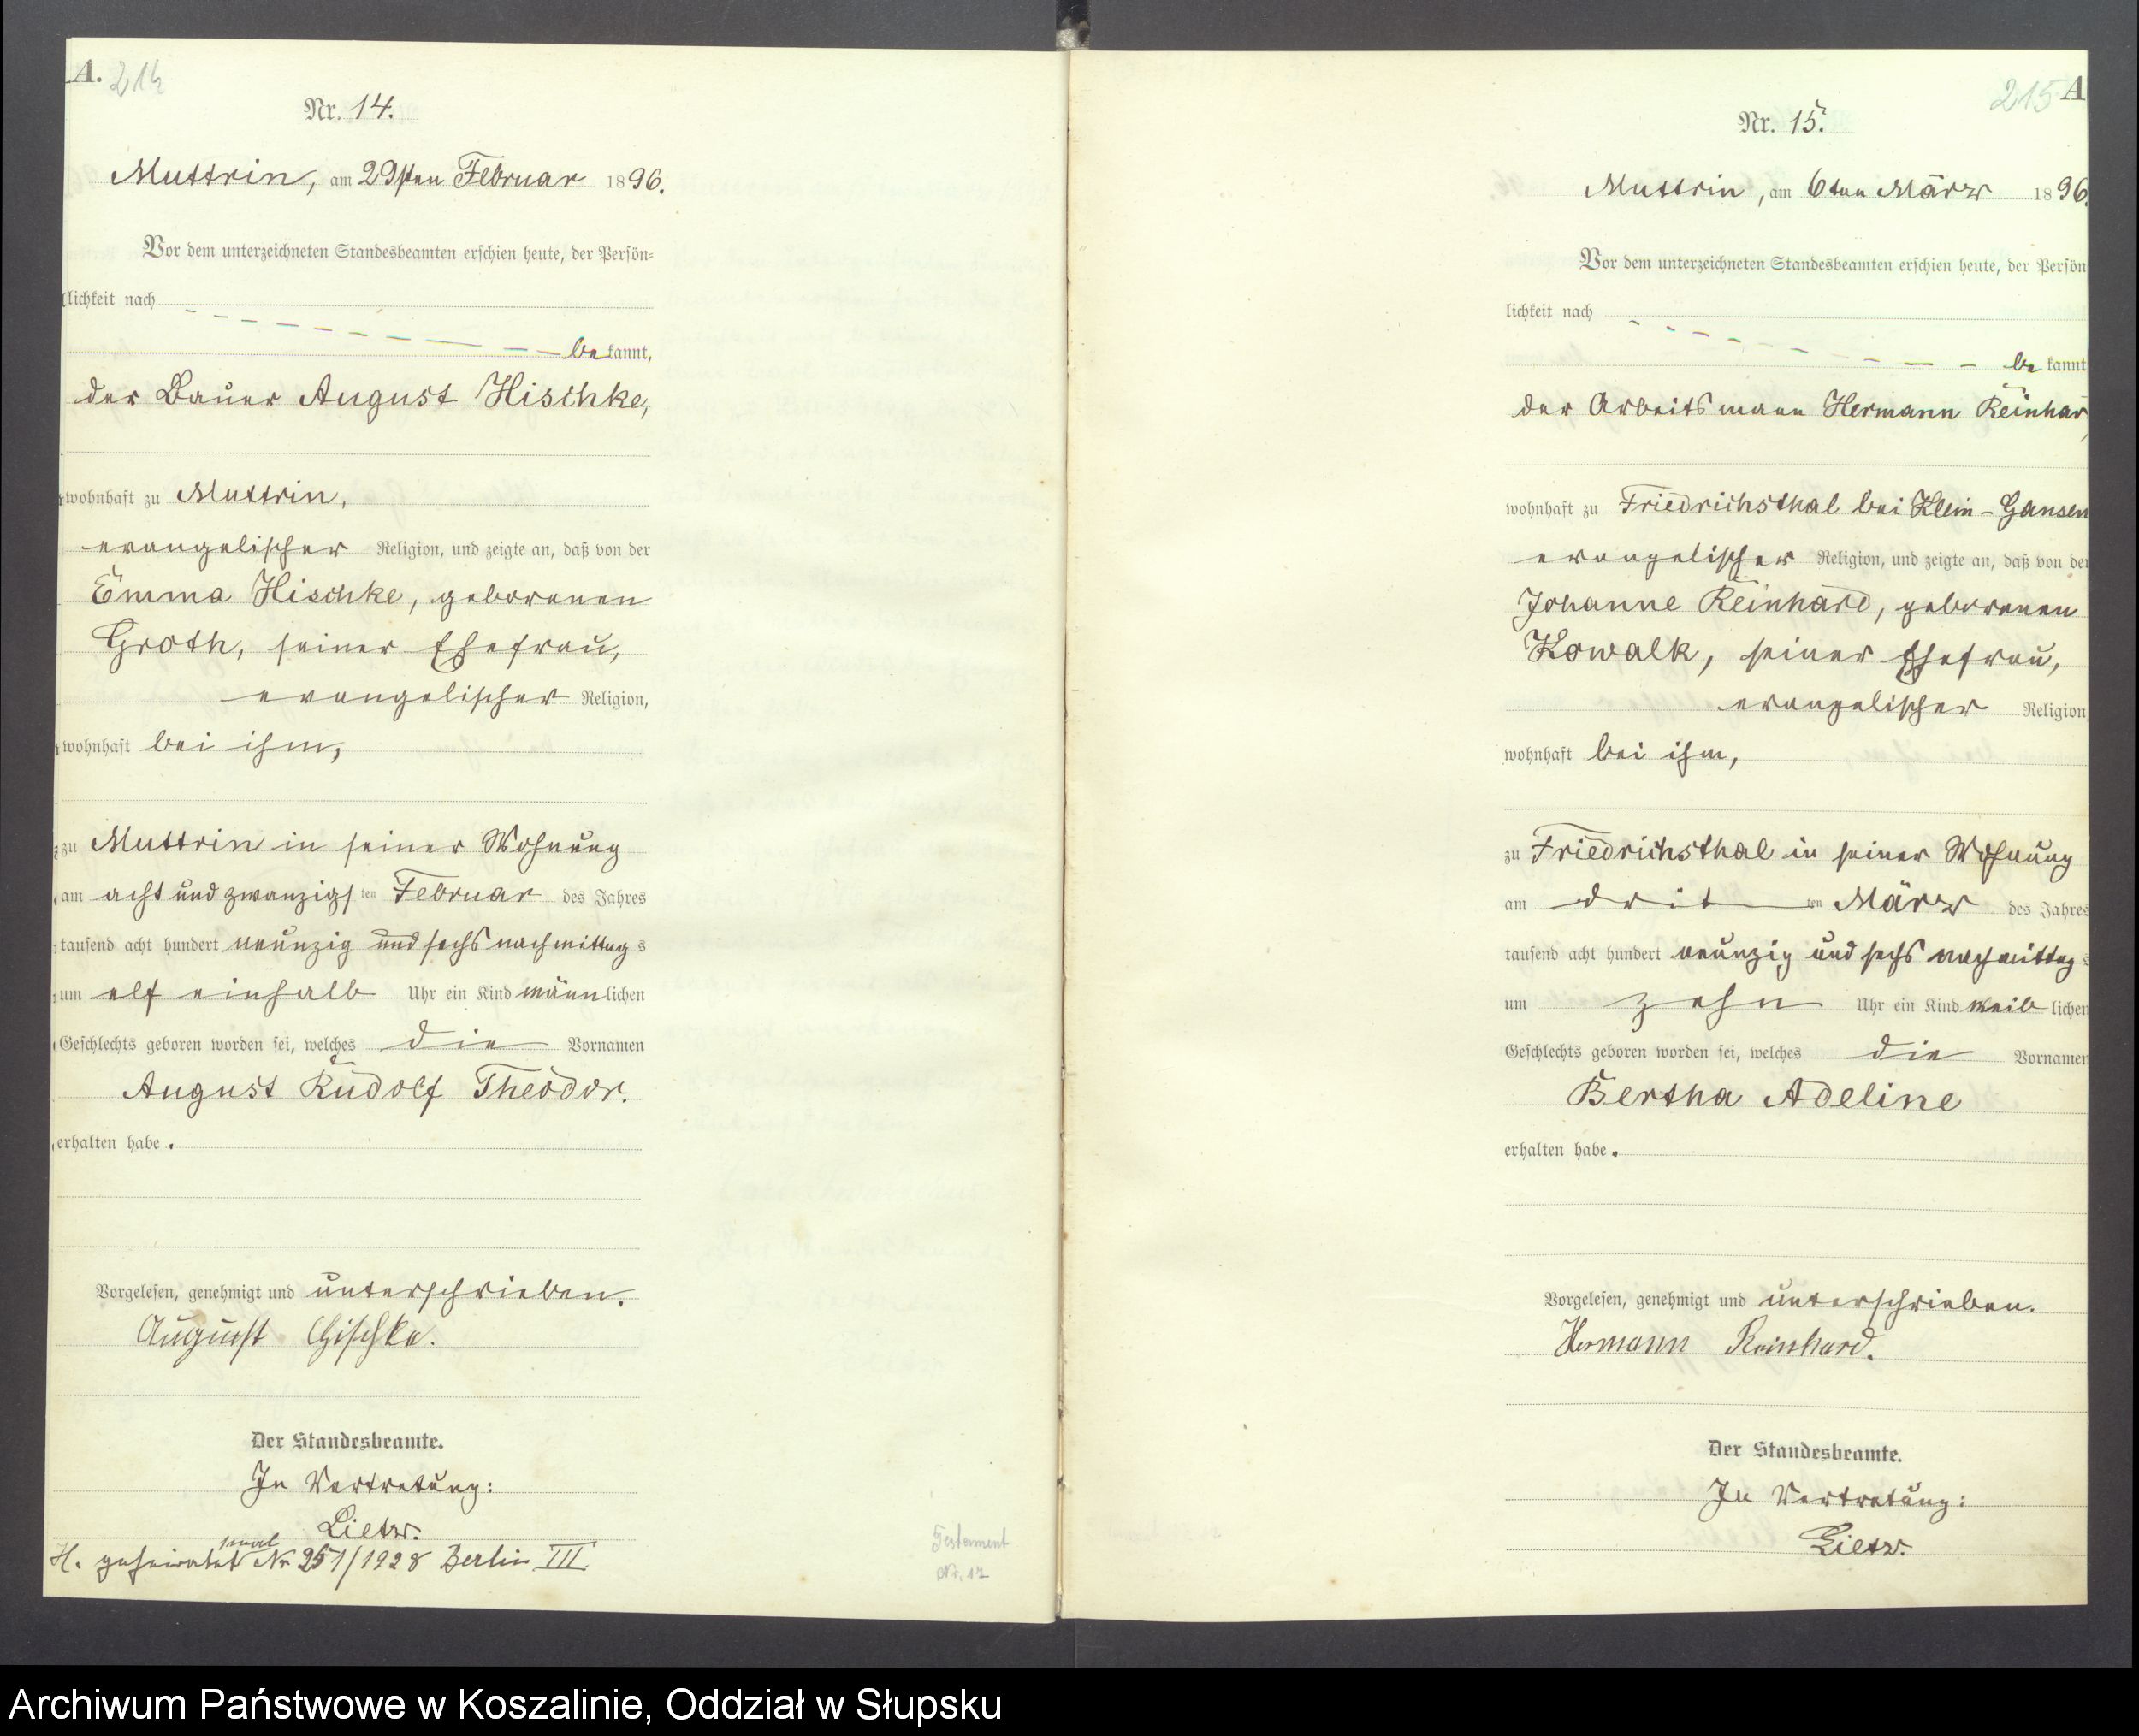 A. 214
Nr. 14.
Muttrin, am 29sten Februar 1896.
Vor dem unterzeichneten Standesbeamten erschien heute, der Persön=
lichkeit nach
bekannt,
der Bauer August Hischke,
wohnhaft zu Muttrin,
evangelischer Religion, und zeigte an, daß von der
Emma Hischke, geborenen
Groth, seiner Ehefrau,
evangelischer Religion,
wohnhaft bei ihm,
zu Muttrin in seiner Wohnung
am acht und zwanzigsten Februar des Jahres
tausend acht hundert neunzig und sechs nachmittags
um elf einhalb Uhr ein Kind männlichen
Geschlechts geboren worden sei, welches die Vornamen
August Rudolf Theodor.
erhalten habe.
Vorgelesen, genehmigt und unterschrieben.
August Hischke.
Der Standesbeamte.
In Vertretung:
Lietz.
H. 1mal geheiratet Nr 251/1928 Berlin III
Testament
Nr. 17
215 A
Nr. 15.
Muttrin, am 6ten März 1896.
Vor dem unterzeichneten Standesbeamten erschien heute, der Persön
lichkeit nach
bekannt
der Arbeitsmann Hermann Reinhar
wohnhaft zu Friedrichsthal bei Klein-Gansen
evangelischer Religion, und zeigte an, daß von der
Johanne Reinhard, geborenen
Kowalk, seiner Ehefrau,
evangelischer Religion
wohnhaft bei ihm,
zu Friedrichsthal in seiner Wohnung
am dritten März des Jahres
tausend acht hundert neunzig und sechs nachmittags
um zehn Uhr ein Kind weiblichen
Geschlechts geboren worden sei, welches die Vornamen
Bertha Adeline
erhalten habe.
Vorgelesen, genehmigt und unterschrieben.
Hermann Reinhard.
Der Standesbeamte.
In Vertretung:
Lietz.
Archiwum Państwowe w Koszalinie, Oddział w Słupsku